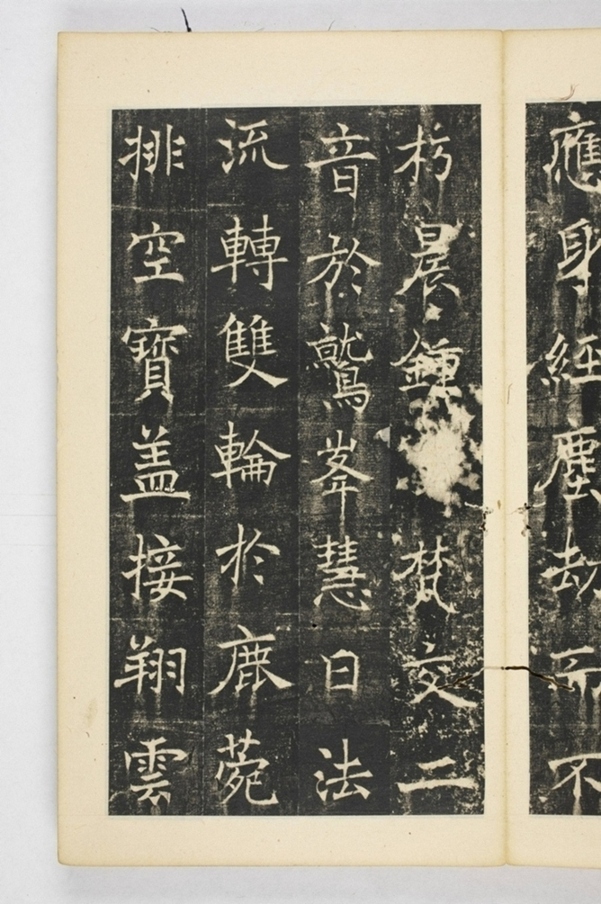 應身經塵劫而不
朽晨鍾梵交二
音於鷲峯慧日法
流轉雙輪於鹿菀
排空寶盖接翔雲